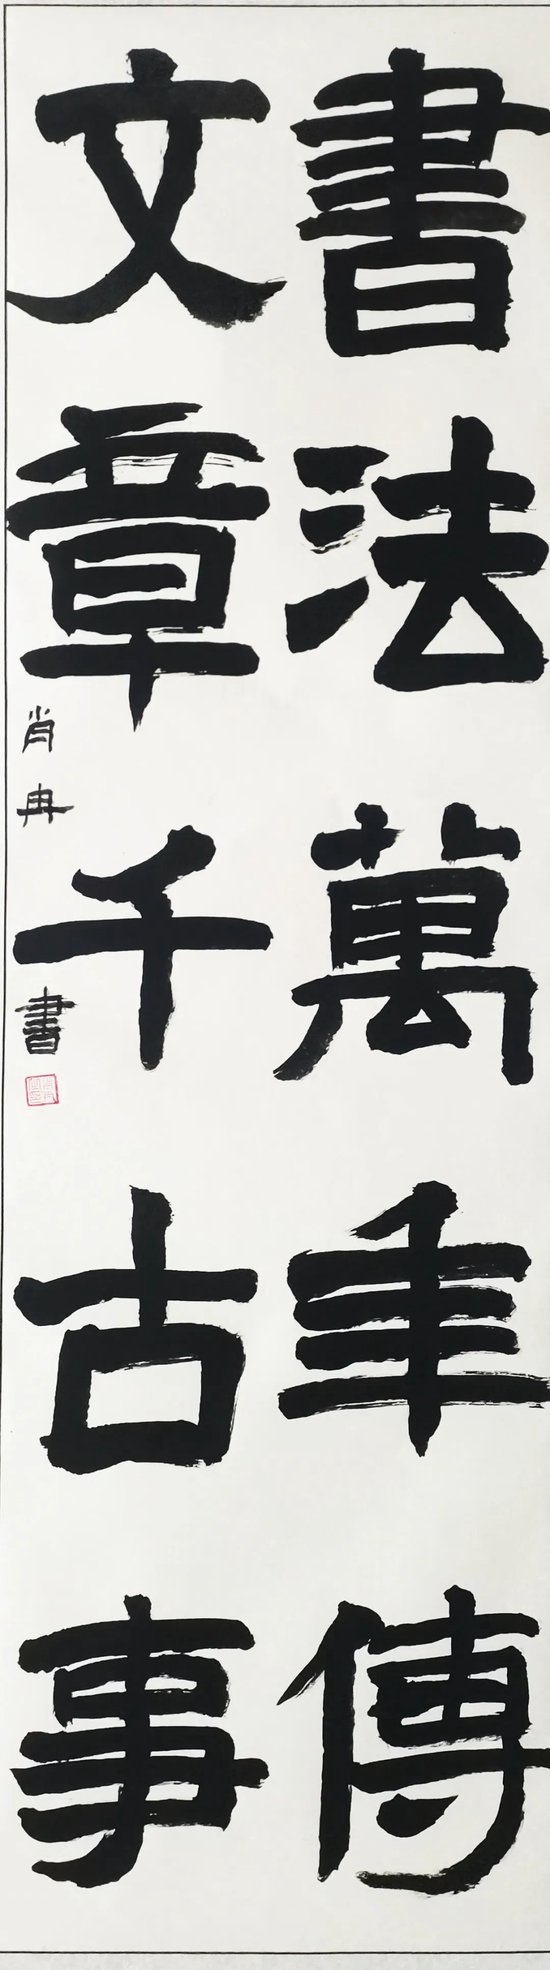 書法萬年傳
文章千古事
肖冉書